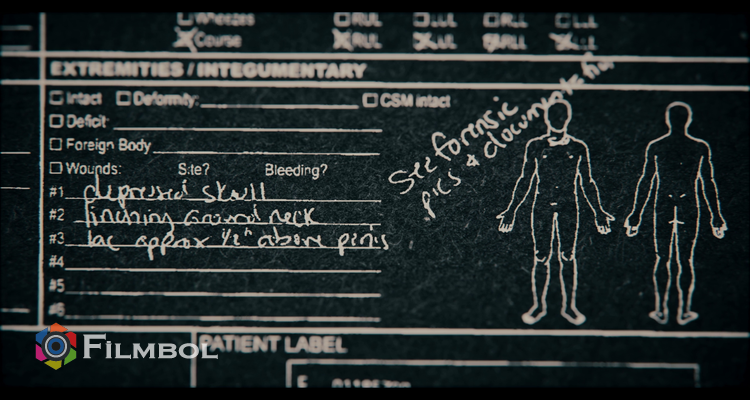 Wheezes RUL LUL RLL LLL
Course RUL LUL RLL LLL
EXTREMITIES / INTEGUMENTARY
Intact Deformity: CSM intact
Deficit
Foreign Body
Wounds: Site? Bleeding?
#1 depressed skull
#2 linching around neck
#3 lac approx 1/2" above penis
#4
#5
#6
See forensic
pics & documentation
FILMBOL
PATIENT LABEL